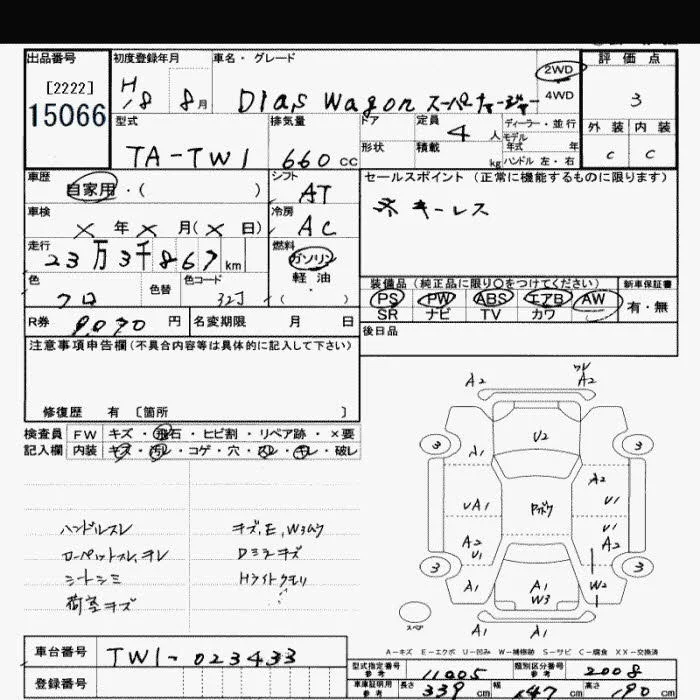 出品番号 初度登録年月 車名・グレード 評価点
[2222] H18 8月 Dias Wagon スーパーチャージャー 2WD 4WD 3
15066 外装 内装
型式 排気量 ドア 定員 4人 ディーラー・並行 C C
TA-TW1 660cc 形状 積載 kg モデル年式 年
ハンドル 左・右
車歴 シフト セールスポイント(正常に機能するものに限ります)
自家用・( ) AT キーレス
車検 冷房
× 年 × 月(× 日) AC
走行 燃料
23万3千867km ガソリン
軽油
( )
色 色替 色コード 装備品(純正品に限り○をつけてください) 新車保証書
クロ 32J PS PW ABS エアB AW 有・無
SR ナビ TV カワ
R券 9,070円 名変期限 月 日 後日品
注意事項申告欄(不具合内容等は具体的に記入して下さい)
修復歴 有 [箇所 ]
検査員 FW キズ・飛石・ヒビ割・リペア跡・×要
記入欄 内装 キズ・汚レ・コゲ・穴・スレ・キレ・破レ
ハンドルスレ キズ、E、W3ムヤ
ローペットスレ、キレ Dミラーキズ
シートシミ Hライトクモリ
荷室キズ
A2 ワレ A2
3 A1 U2 3
UA1 Pボウ A2 U1
A2 U1 U1 A2
3 A1 A1 W3 W2 3
スペア A1 A1
A-キズ E-エクボ U-凹み W-補修跡 S-サビ C-腐食 XX-交換済
車台番号 TW1-023433
登録番号
型式指定番号 参考 11005 類別区分番号 参考 2008
車庫証明用 参考 長さ 339cm 幅 147cm 高さ 190cm